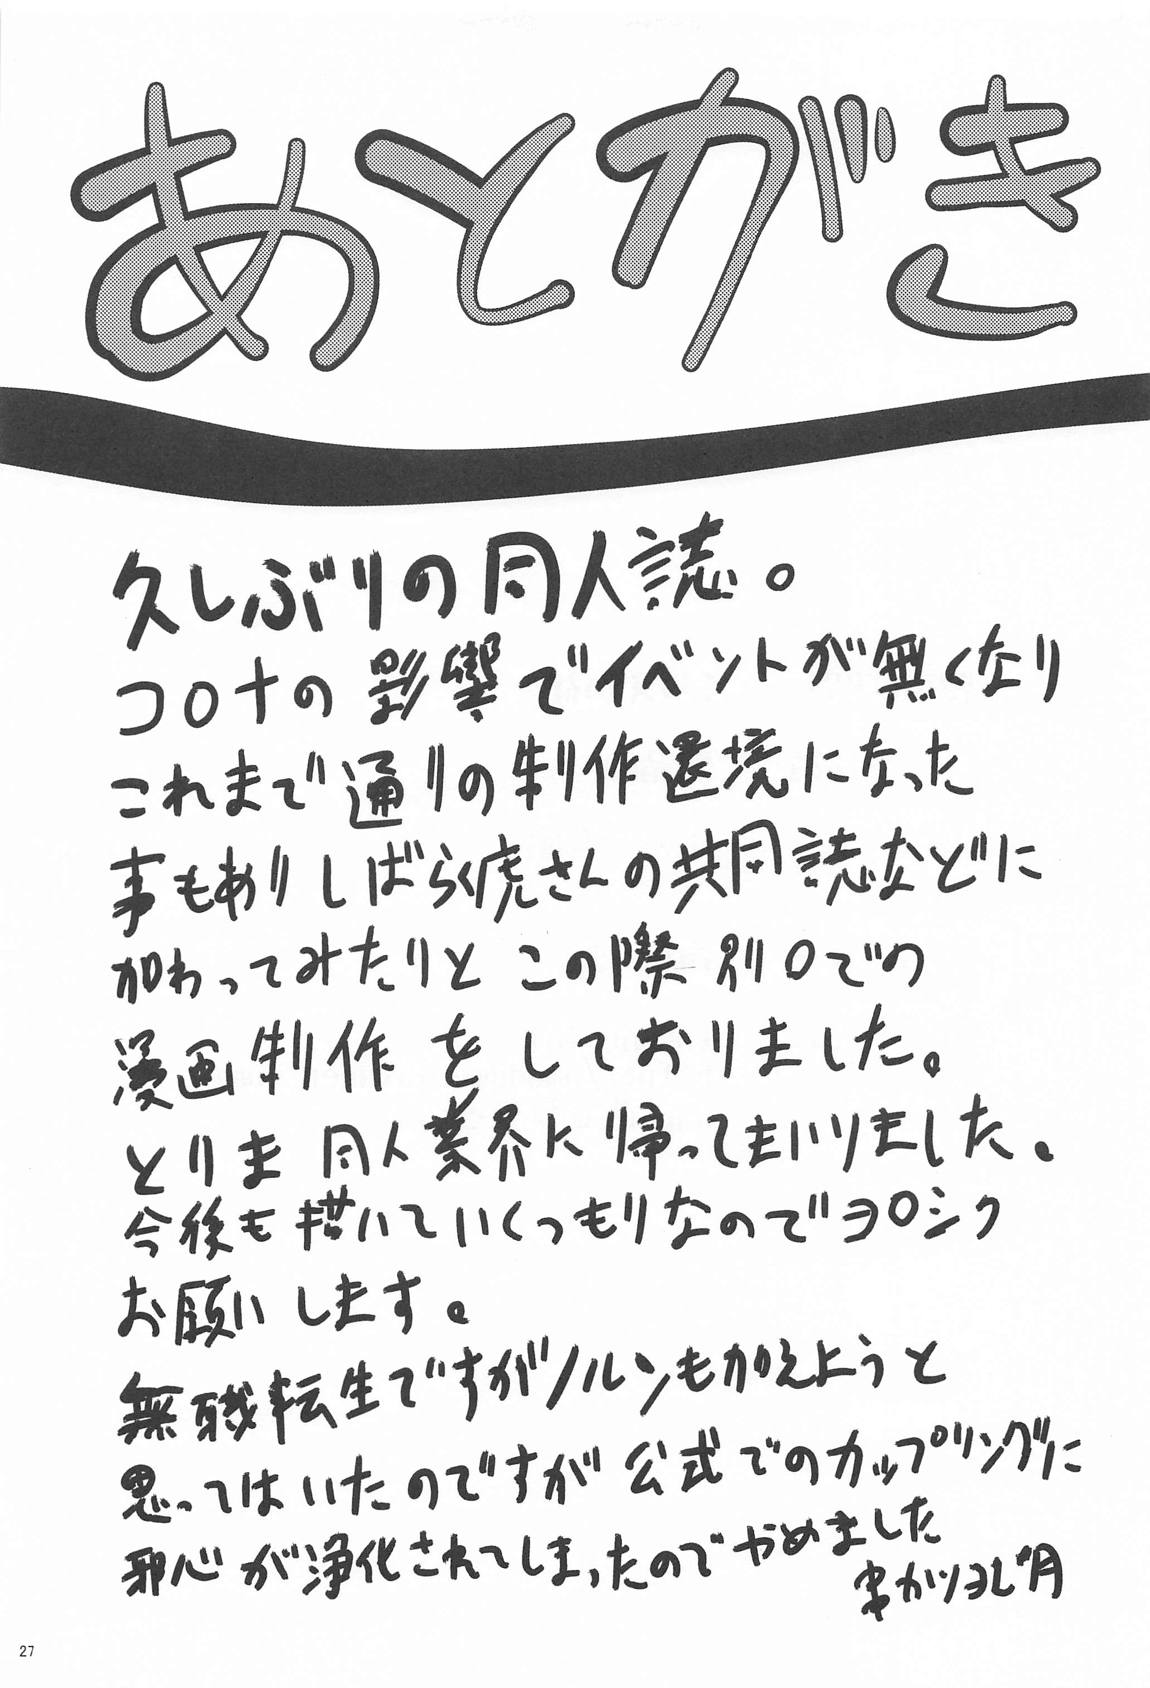 あとがき
久しぶりの同人誌。
コロナの影響でイベントが無くなり
これまで通りの制作還境になった
事もありしばらく虎さんの共同誌などに
加わってみたりと この際 別口での
漫画制作 を しておりました。
とりま 同人業界に帰ってまいりました。
今後も描いていくつもりなのでヨロシク
お願いします。
無職転生ですがノルンもかえようと
思ってはいたのですが公式でのカップリングに
邪心が浄化されてしまったのでやめました
串かつヨしナ月
27